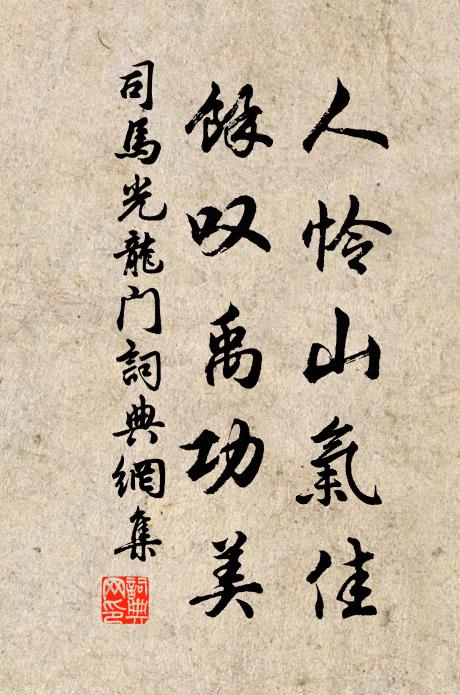 人怜山氣佳
餘叹禹功美
司馬光龍门詞典網集
詞典网印